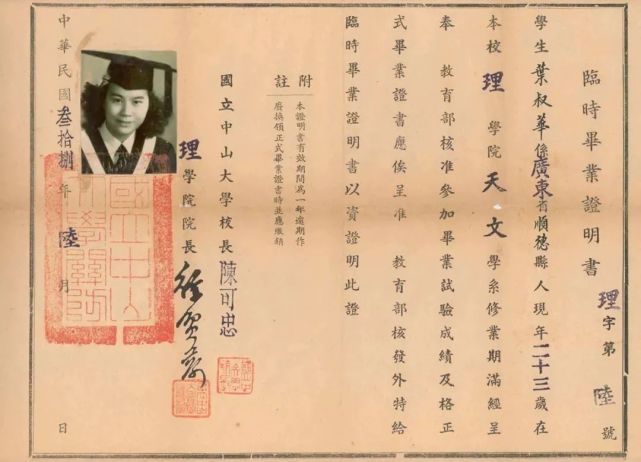 臨時畢業證明書
理字第陸號
學生葉叔華係廣東省順德縣人現年二十三歲在
本校理學院天文學系修業期滿經呈
奉教育部核准參加畢業試驗成績及格正
式畢業證書應俟呈准教育部核發外特給
臨時畢業證明書以資證明此證
附註
本證明書有效期間為一年逾期作
廢換領正式畢業證書時並應繳銷
國立中山大學校長陳可忠
理學院院長
中華民國叁拾捌年陸月日
國立中山大學關防